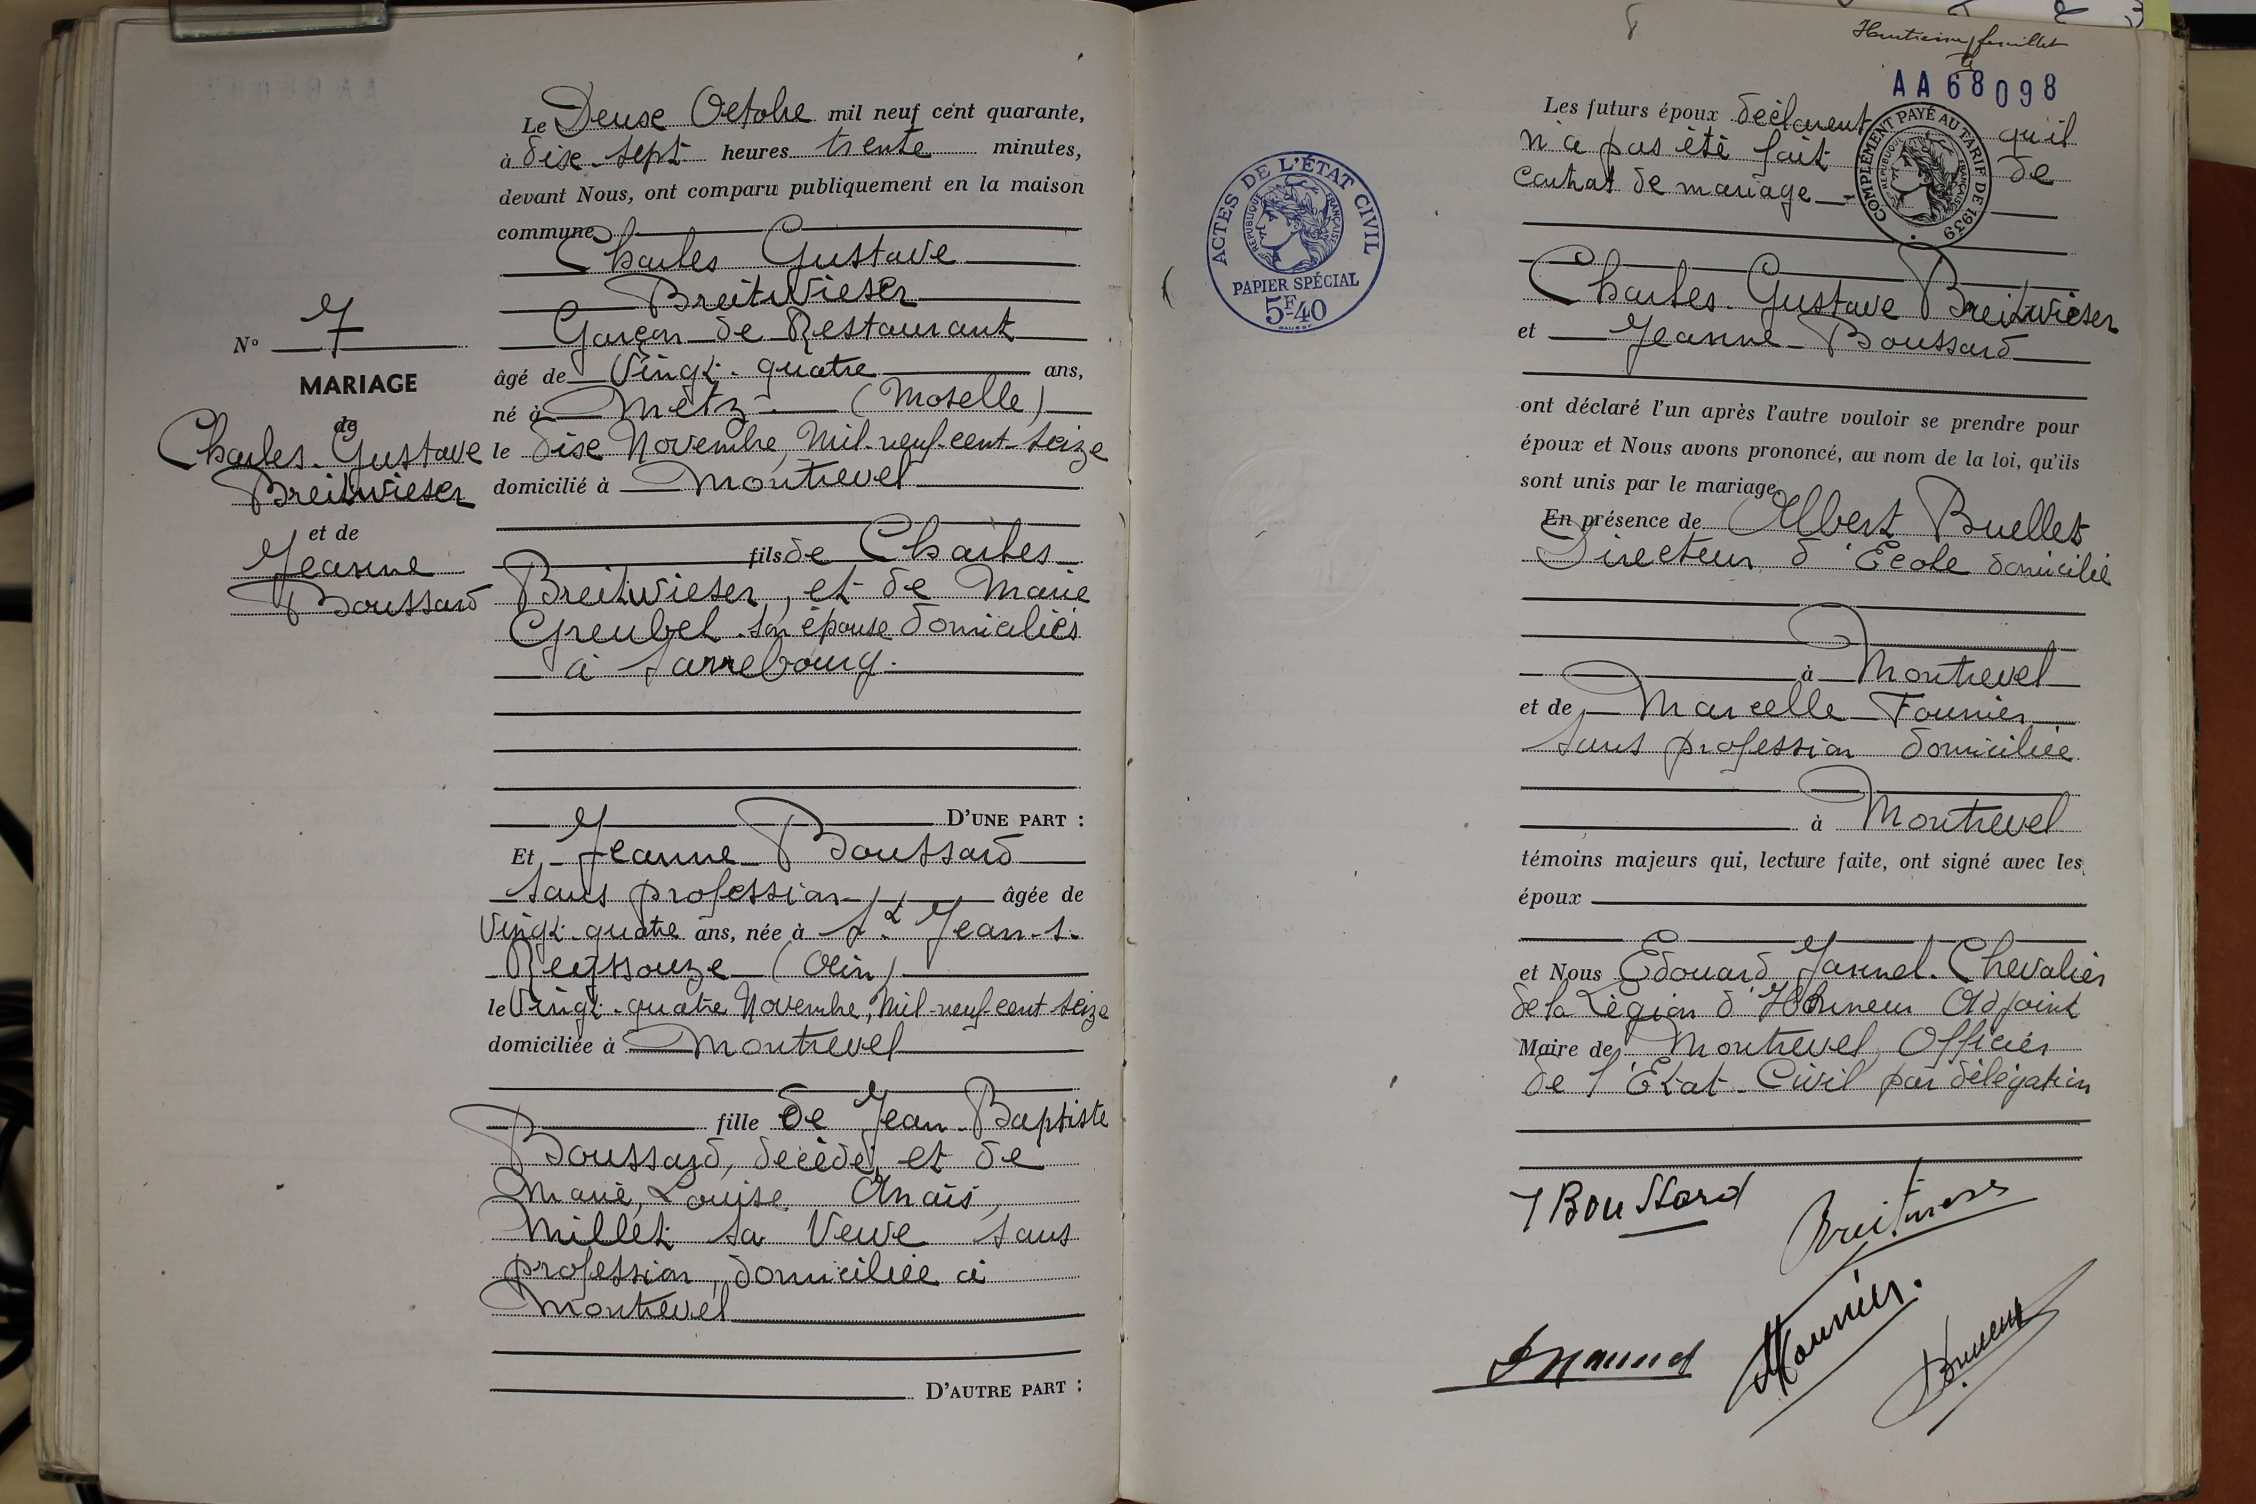 N° 7
MARIAGE
de
Charles-Gustave
Breitwieser
et de
Jeanne
Boussard
Le Deuxe Octobre mil neuf cent quarante,
à dixe-sept heures trente minutes,
devant Nous, ont comparu publiquement en la maison
commune
Charles Gustave
Breitwieser
Garçon de Restaurant
âgé de Vingt-quatre ans,
né à Metz (Moselle)
le dixe Novembre, Mil-neuf-cent-seize
domicilié à Montrevel
fils de Charles
Breitwieser, et de Marie
Greubel son épouse domiciliés
à Sarrebourg.
D'UNE PART :
Et Jeanne Boussard
sans profession âgée de
Vingt-quatre ans, née à St Jean-s-
Reyssouze (Ain)
le Vingt-quatre Novembre, Mil-neuf-cent seize
domiciliée à Montrevel
fille de Jean-Baptiste
Boussard, décédé, et de
Marie, Louise Anaïs,
Millet sa Veuve sans
profession, domiciliée à
Montrevel
D'AUTRE PART :
ACTES DE L'ÉTAT CIVIL
RÉPUBLIQUE FRANÇAISE
PAPIER SPÉCIAL
5F40
feuillet
AA68098
COMPLÉMENT PAYÉ AU TARIF DE 1939
RÉPUBLIQUE FRANÇAISE
Les futurs époux déclarent qu'il
n'a pas été fait de
contrat de mariage
Charles-Gustave Breitwieser
et Jeanne-Boussard
ont déclaré l'un après l'autre vouloir se prendre pour
époux et Nous avons prononcé, au nom de la loi, qu'ils
sont unis par le mariage.
En présence de Albert Buellet
Directeur d'École domicilié
à Montrevel
et de Marcelle Founier
sans profession domiciliée
à Montrevel
témoins majeurs qui, lecture faite, ont signé avec les
époux
et Nous Edouard Jannel-Chevalier
de la Légion d'Honneur Adjoint
Maire de Montrevel, Officier
de l'Etat-Civil par délégation
J Boussard